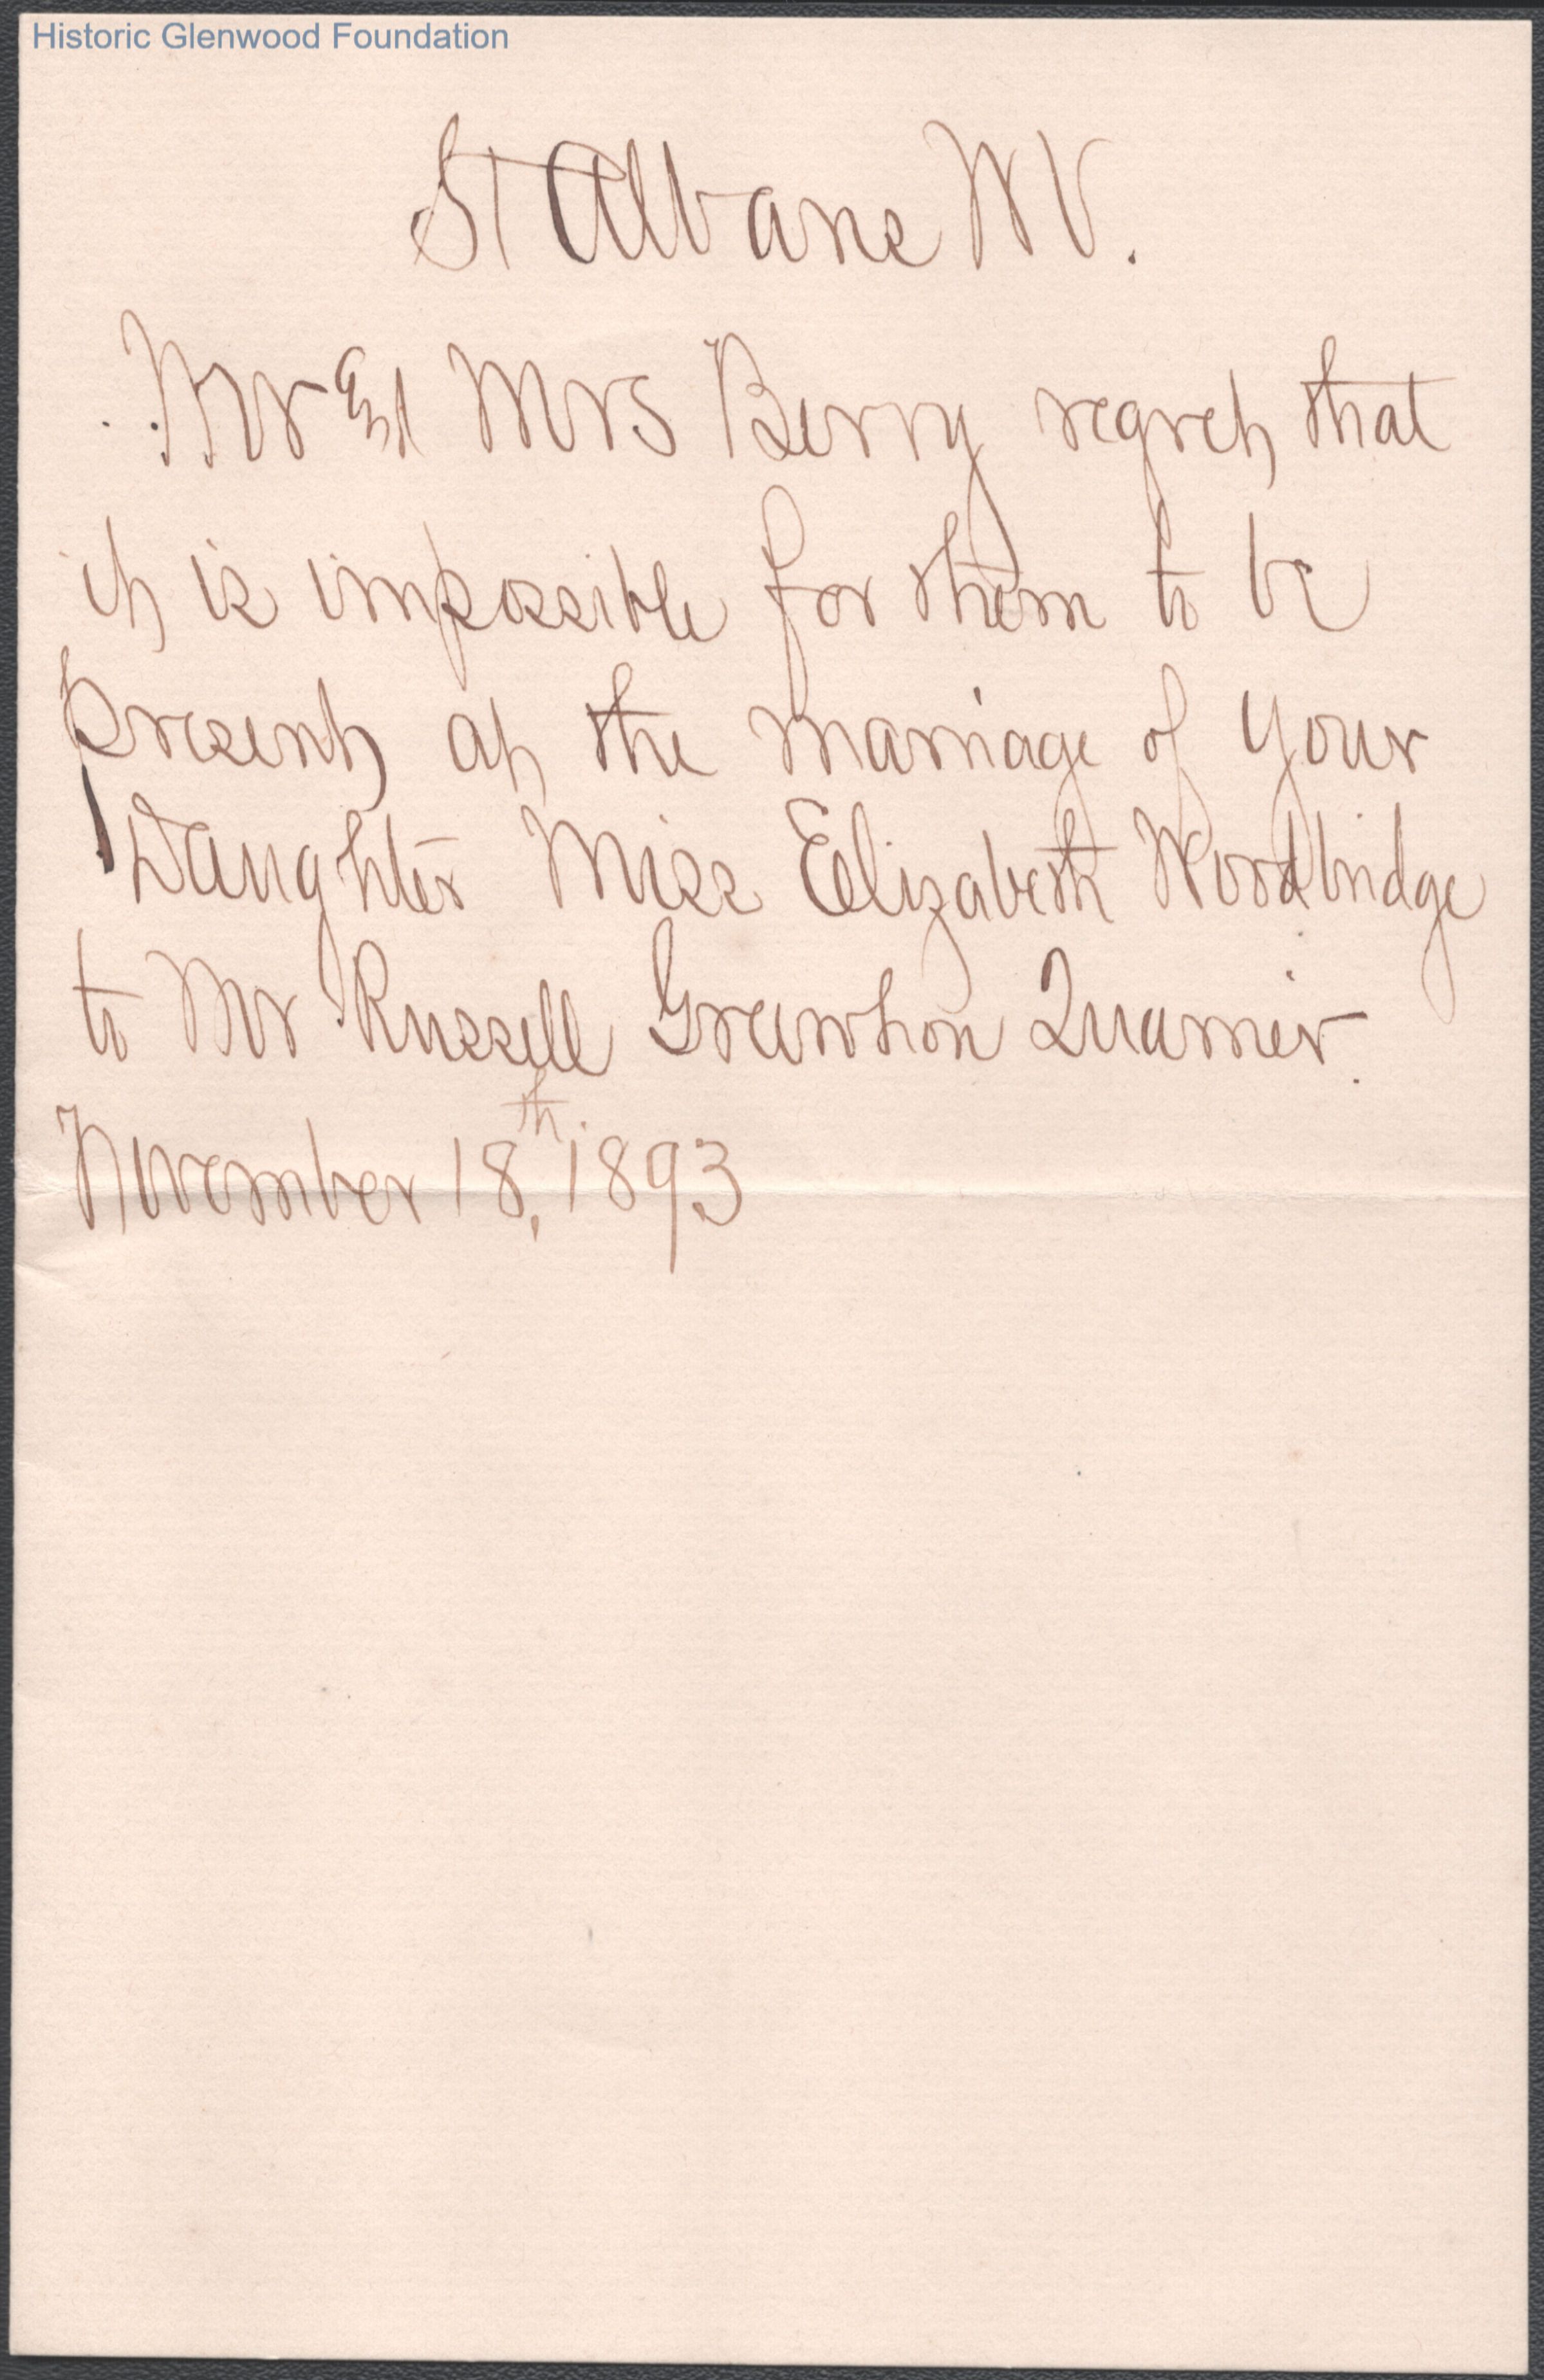 Historic Glenwood Foundation
St Albans W V.
Mr and Mrs Berry regret that
it is impossible for them to be
present at the marriage of your
Daughter Miss Elizabeth Woodbridge
to Mr Russell Quarrier.
November 18th, 1893